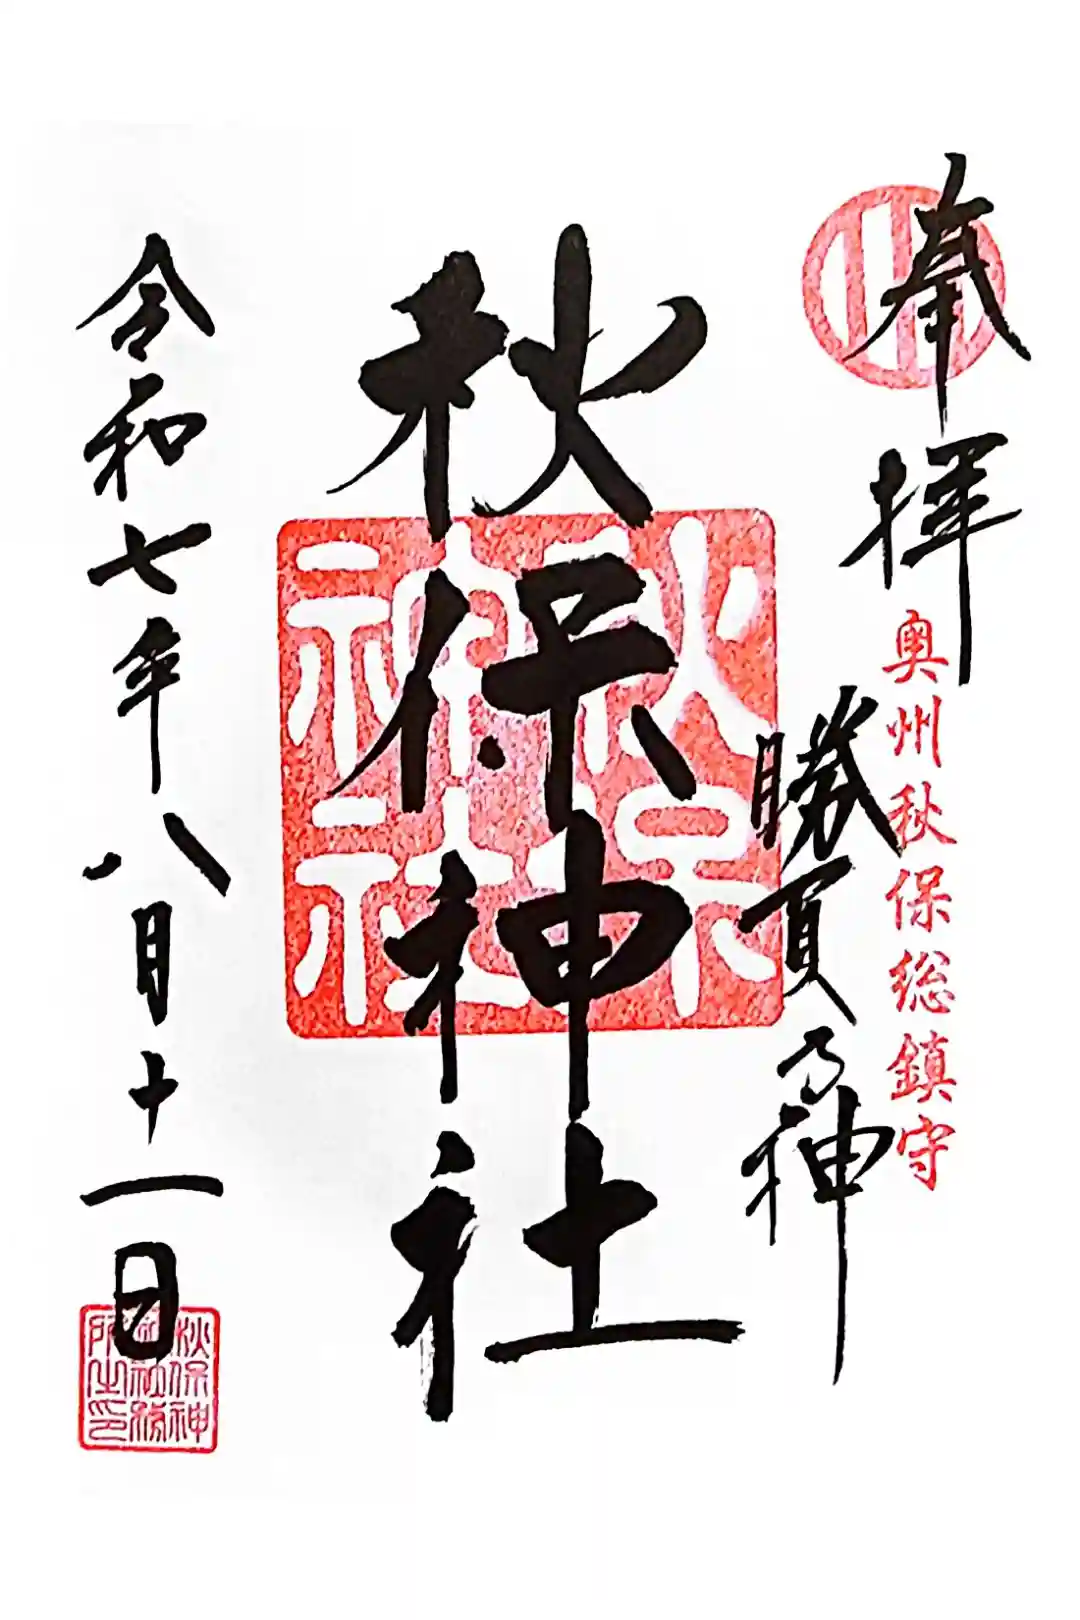 奉拝
奥州秋保総鎮守
勝負乃神
秋保神社
秋保神社
令和七年八月十一日
秋保神社務所之印